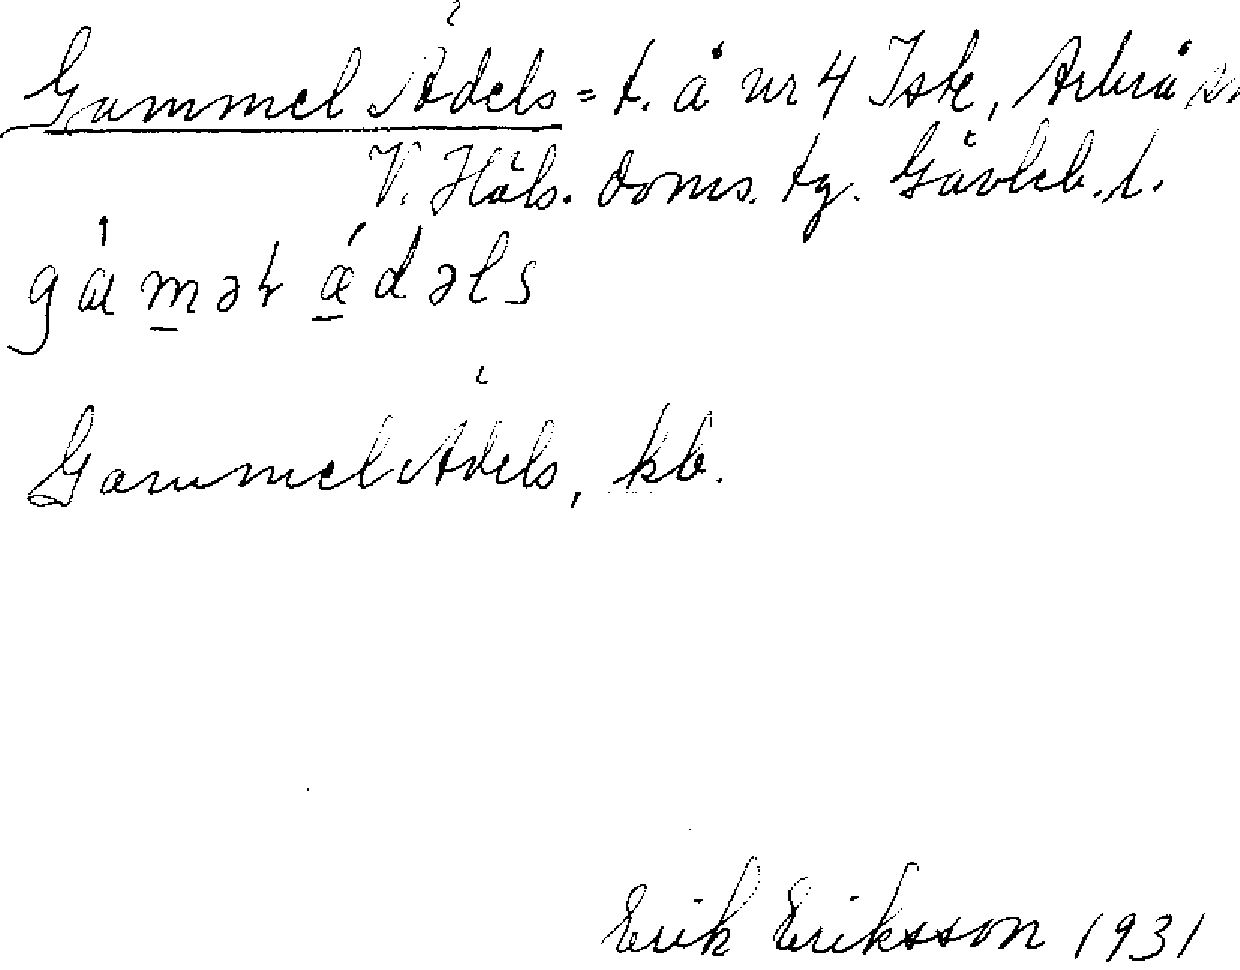 Gammel Ädels = t. å nr 4 Iste, Arbrå sn
V. Häls. doms. tg. Gävleb. l.
gámət ǽdəls
Gammel Ädels, kb.
Erik Eriksson 1931